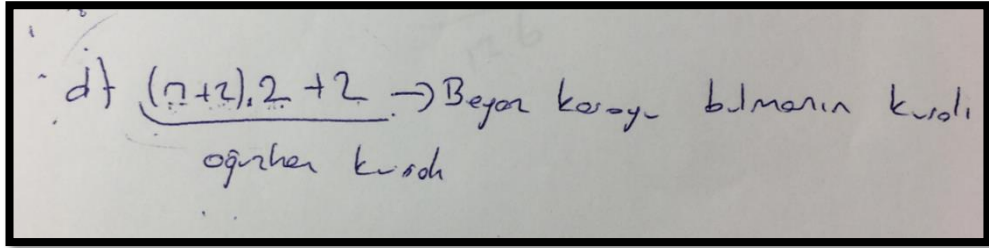 d) (n+2).2 +2 → Beyaz karayı bulmanın kuralı
oğuzhan kuralı